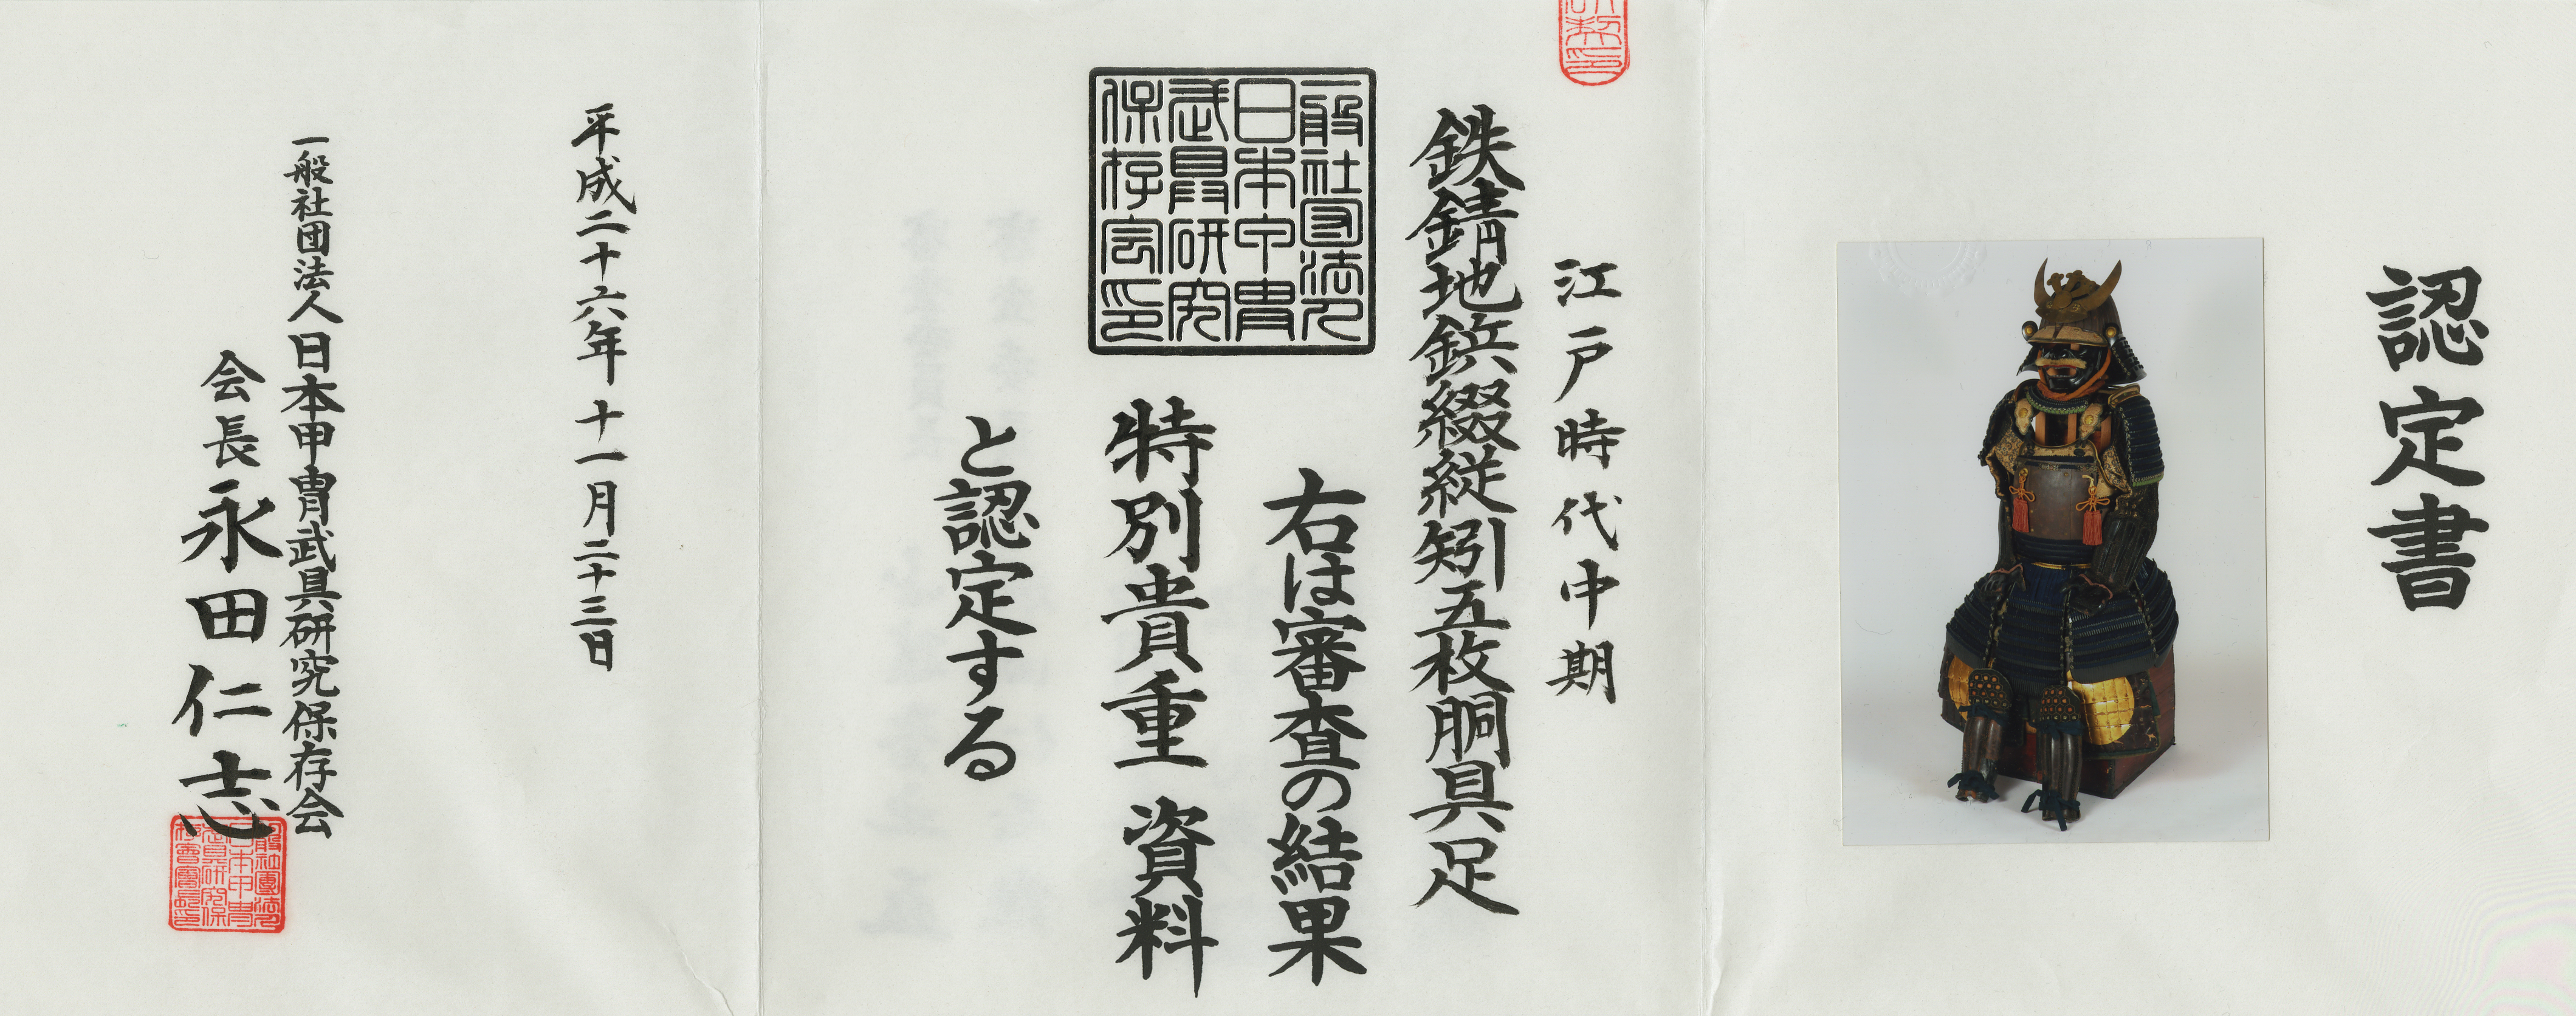 認定書
江戸時代中期
鉄錆地鋲綴縦矧五枚胴具足
右は審査の結果
一般社団法人
日本甲冑
武具研究
保存会印
特別貴重資料
と認定する
平成二十六年十一月二十三日
一般社団法人日本甲冑武具研究保存会
会長永田仁志
一般社團法人
日本甲冑
武具研究保
存會會長印